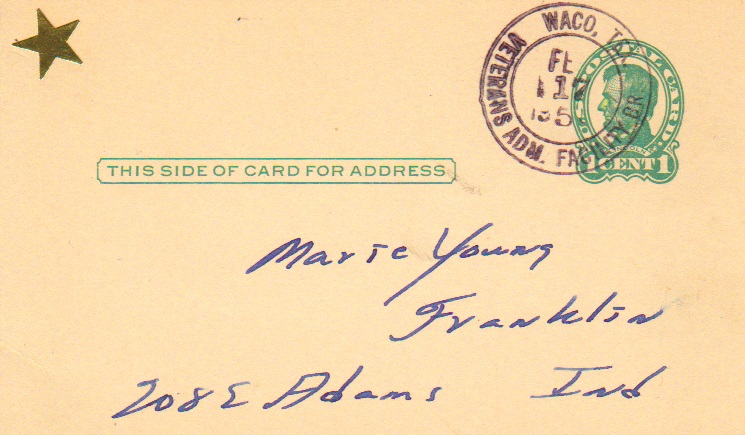 WACO, TEX.
VETERANS ADM. FACILITY BR.
FE
17
195
POSTAL CARD
1 CENT 1
THIS SIDE OF CARD FOR ADDRESS
Marie Young
Franklin
208 E Adams Ind